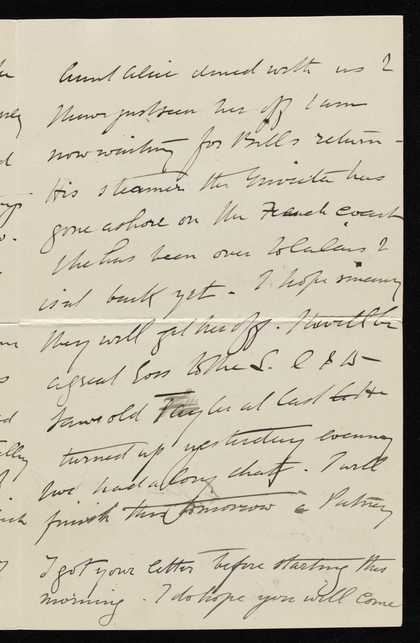 Aunt Alice dined with us &
I have just seen her off I am
now waiting for Bill's return -
His steamer the Invicta has
gone ashore on the French coast
He has been over to Calais &
isnt back yet - I hope
they will get her off. It will be
a great loss to the S. E & D
saw old Taylor at last He
turned up yesterday evening
we had a long chat. I will
finish this tomorrow Putney
I got your letter before starting this
morning. I do hope you will come